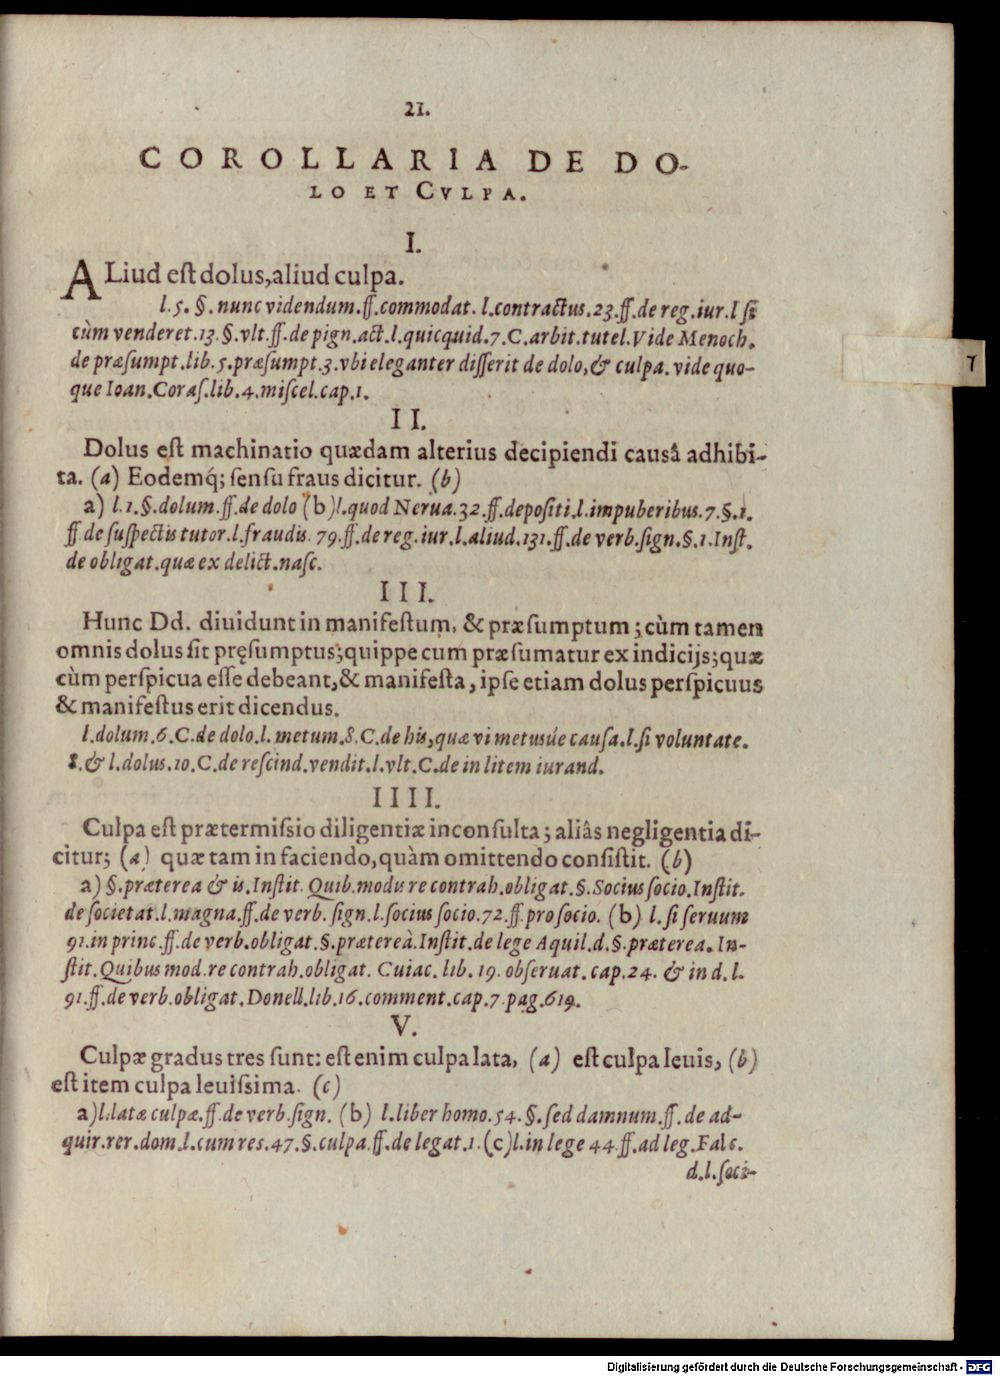 21.
COROLLARIA DE DO-
LO ET CVLPA.
I.
ALiud est dolus, aliud culpa.
l.5.§.nunc videndum.ff.commodat.l.contractus.23.ff.de reg.iur.l si
cùm venderet.13.§.vlt.ff.de pign.act.l.quicquid.7.C.arbit.tutel.Vide Menoch.
de præsumpt.lib.5.præsumpt.3.vbi eleganter disserit de dolo,& culpa.vide quo-
que Ioan.Coras.lib.4.miscel.cap.1.
II.
Dolus est machinatio quædam alterius decipiendi causâ adhibi-
ta. (a) Eodemq́; sensu fraus dicitur. (b)
a) l.1.§.dolum.ff.de dolo (b)l.quod Nerua.32.ff.depositi.l.impuberibus.7.§.1.
ff.de suspectis tutor.l.fraudis.79.ff.de reg.iur.l.aliud.131.ff.de verb.sign.§.1.Inst.
de obligat.quæ ex delict.nasc.
III.
Hunc Dd. diuidunt in manifestum, & præsumptum; cùm tamen
omnis dolus sit pręsumptus; quippe cum præsumatur ex indicijs; quæ
cùm perspicua esse debeant, & manifesta, ipse etiam dolus perspicuus
& manifestus erit dicendus.
l.dolum.6.C.de dolo.l.metum.8.C.de his,quæ vi metusúe causa.l.si voluntate.
8.& l.dolus.10.C.de rescind.vendit.l.vlt.C.de in litem iurand.
IIII.
Culpa est prætermissio diligentiæ inconsulta; aliâs negligentia di-
citur; (a) quæ tam in faciendo, quàm omittendo consistit. (b)
a) §.præterea & is.Instit. Quib.modu re contrah.obligat.§.Socius socio.Instit.
de societat.l.magna.ff.de verb.sign.l.socius socio.72.ff.pro socio. (b) l.si seruum
91.in princ.ff.de verb.obligat.§.præterea̍.Instit.de lege Aquil.d.§.præterea.In-
stit.Quibus mod.re contrah.obligat. Cuiac. lib. 19. obseruat. cap.24. & in d. l.
91.ff.de verb.obligat.Donell.lib.16.comment.cap.7.pag.619.
V.
Culpæ gradus tres sunt: est enim culpa lata, (a) est culpa leuis, (b)
est item culpa leuissima. (c)
a)l.latæ culpæ.ff.de verb.sign. (b) l.liber homo.54.§.sed damnum.ff.de ad-
quir.rer.dom.l.cum res.47.§.culpa.ff.de legat.1.(c)l.in lege 44.ff.ad leg.Falc.
d.l.soci-
7
Digitalisierung gefördert durch die Deutsche Forschungsgemeinschaft - DFG